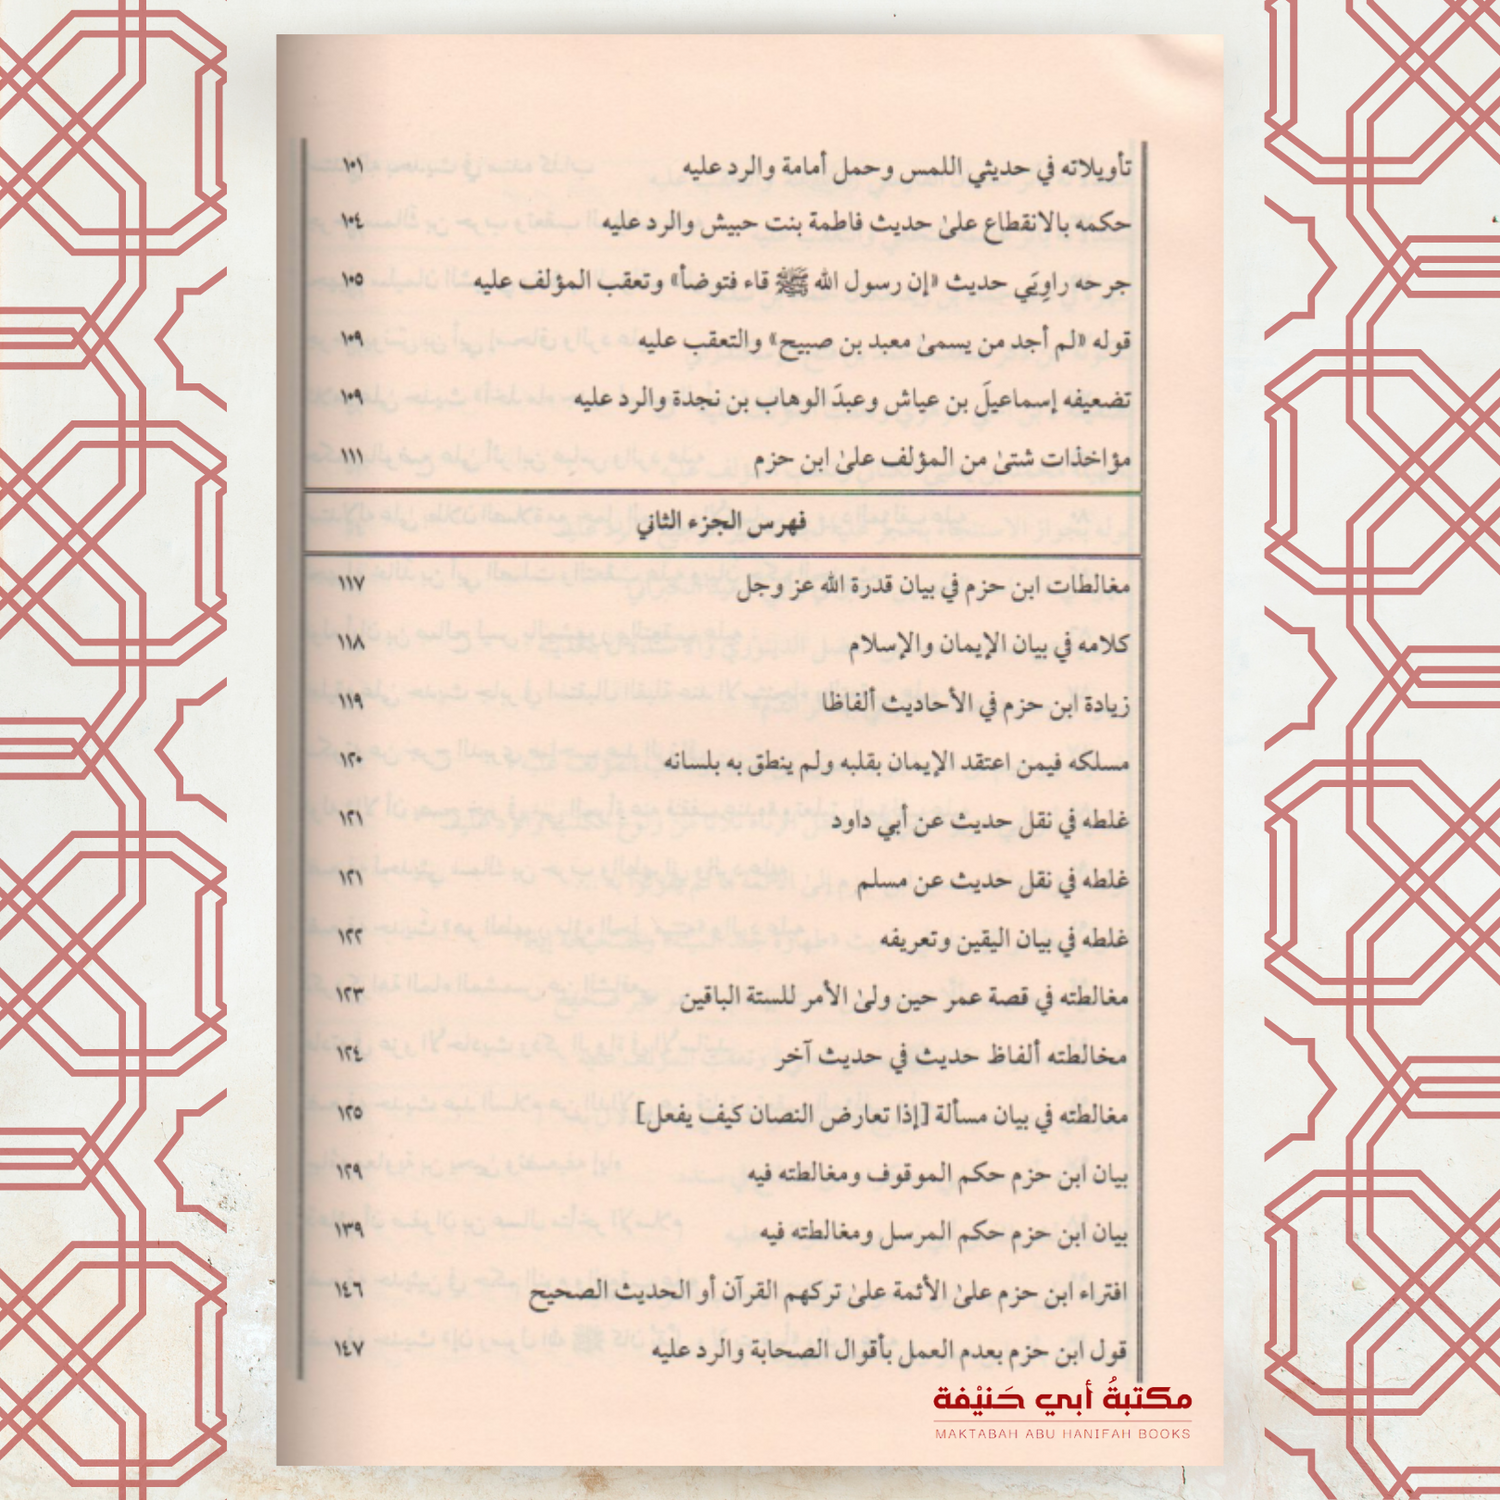 تأويلاته في حديثي اللمس وحمل أمامة والرد عليه ١٠١
حكمه بالانقطاع علىٰ حديث فاطمة بنت حبيش والرد عليه ١٠٤
جرحه راوِيَي حديث «إن رسول الله ﷺ قاء فتوضأ» وتعقب المؤلف عليه ١٠٥
قوله «لم أجد من يسمىٰ معبد بن صبيح» والتعقب عليه ١٠٩
تضعيفه إسماعيلَ بن عياش وعبدَ الوهاب بن نجدة والرد عليه ١٠٩
مؤاخذات شتىٰ من المؤلف علىٰ ابن حزم ١١١
فهرس الجزء الثاني
مغالطات ابن حزم في بيان قدرة الله عز وجل ١١٧
كلامه في بيان الإيمان والإسلام ١١٨
زيادة ابن حزم في الأحاديث ألفاظا ١١٩
مسلكه فيمن اعتقد الإيمان بقلبه ولم ينطق به بلسانه ١٢٠
غلطه في نقل حديث عن أبي داود ١٢١
غلطه في نقل حديث عن مسلم ١٢١
غلطه في بيان اليقين وتعريفه ١٢٢
مغالطته في قصة عمر حين ولىٰ الأمر للستة الباقين ١٢٣
مخالطته ألفاظ حديث في حديث آخر ١٢٤
مغالطته في بيان مسألة [إذا تعارض النصان كيف يفعل] ١٢٥
بيان ابن حزم حكم الموقوف ومغالطته فيه ١٢٩
بيان ابن حزم حكم المرسل ومغالطته فيه ١٣٩
افتراء ابن حزم علىٰ الأئمة علىٰ تركهم القرآن أو الحديث الصحيح ١٤٦
قول ابن حزم بعدم العمل بأقوال الصحابة والرد عليه ١٤٧
مكتبةُ أبي حَنيْفة
MAKTABAH ABU HANIFAH BOOKS